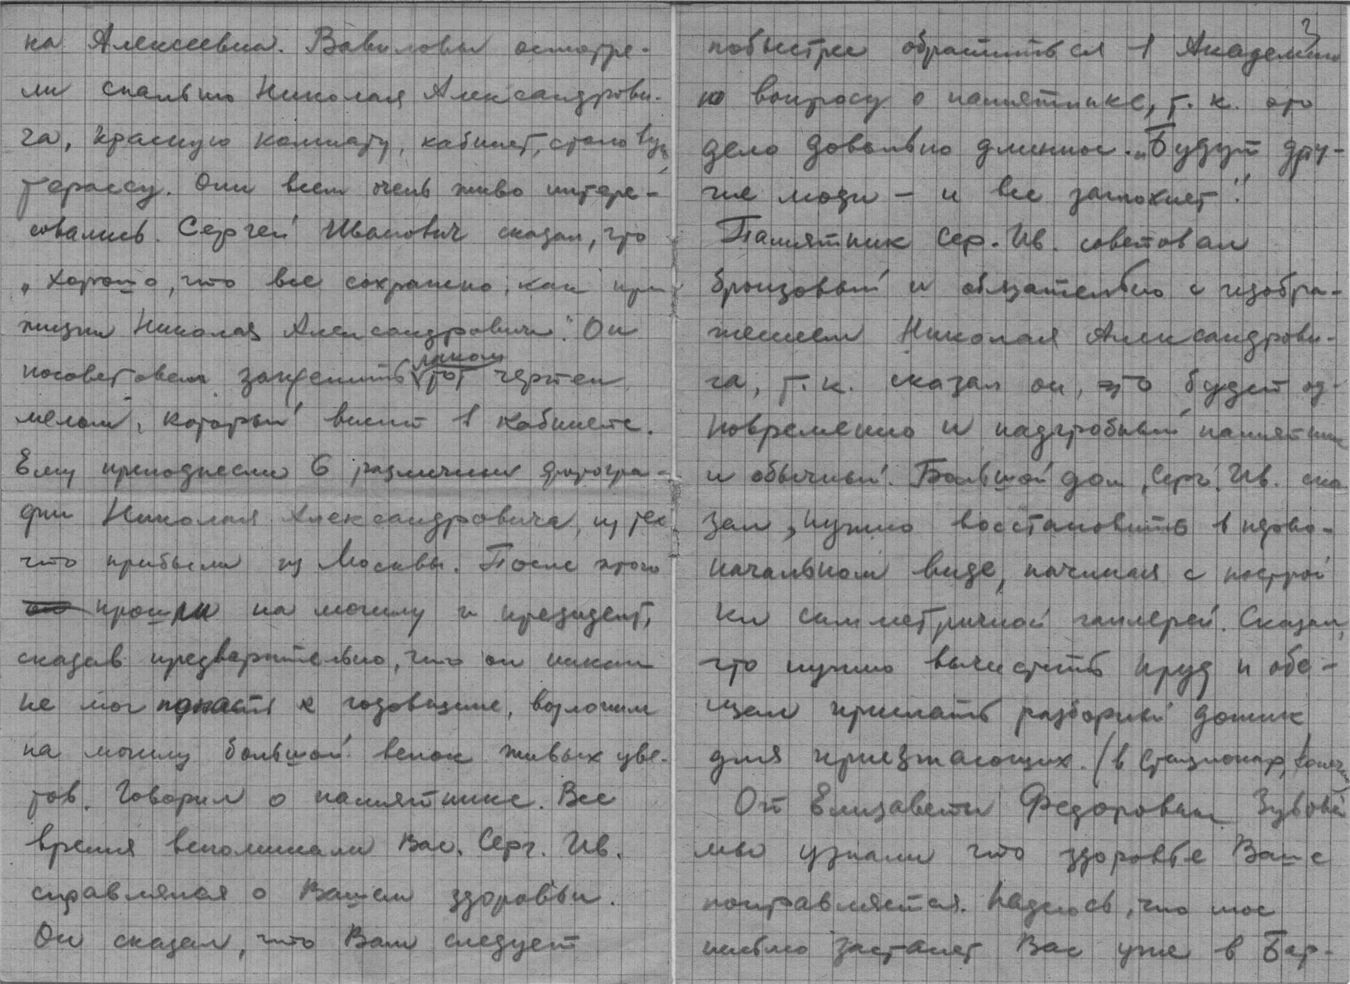 на Алексеевна. Вавиловы осмотре-
ли спальню Николая Александрови-
ча, красную комнату, кабинет, столовую,
терассу. Они всем очень живо интере-
совались. Сергей Иванович сказал, что
„Хорошо, что все сохранено, как при
жизни Николая Александровича". Он
посоветовал закрепить лаком тот чертеж
мелом, который висит в кабинете.
Ему преподнесли 6 различных фотогра-
фии Николая Александровича, из тех
что прибыли из Москвы. После этого
прошли на могилу и президент,
сказав предварительно, что он никак
не мог попасть к годовщине, возложил
на могилу большой венок живых цве-
тов. Говорил о памятнике. Все
время вспоминали Вас. Серг. Ив.
справлялся о Вашем здоровьи.
Он сказал, что Вам следует
3
побыстрее обратиться в Академию
по вопросу о памятнике, т. к. это
дело довольно длинное. „Будут дру-
гие люди – и все заглохнет".
Памятник Сер. Ив. советовал
бронзовый и обязательно с изобра-
жением Николая Александрови-
ча, т. к. сказал он, это будет од-
новременно и надгробный памятник
и обычный. Большой дом, Серг. Ив. ска-
зал, нужно восстановить в перво-
начальном виде, начиная с построй
ки симметричной галлереи. Сказал,
что нужно вычистить пруд и обе-
щал прислать разборный домик
для приезжающих. (в стационар,
От Елизаветы Федоровны Зубовой
мы узнали что здоровье Ваше
поправляется. Надеюсь, что мое
письмо застанет Вас уже в Бор-